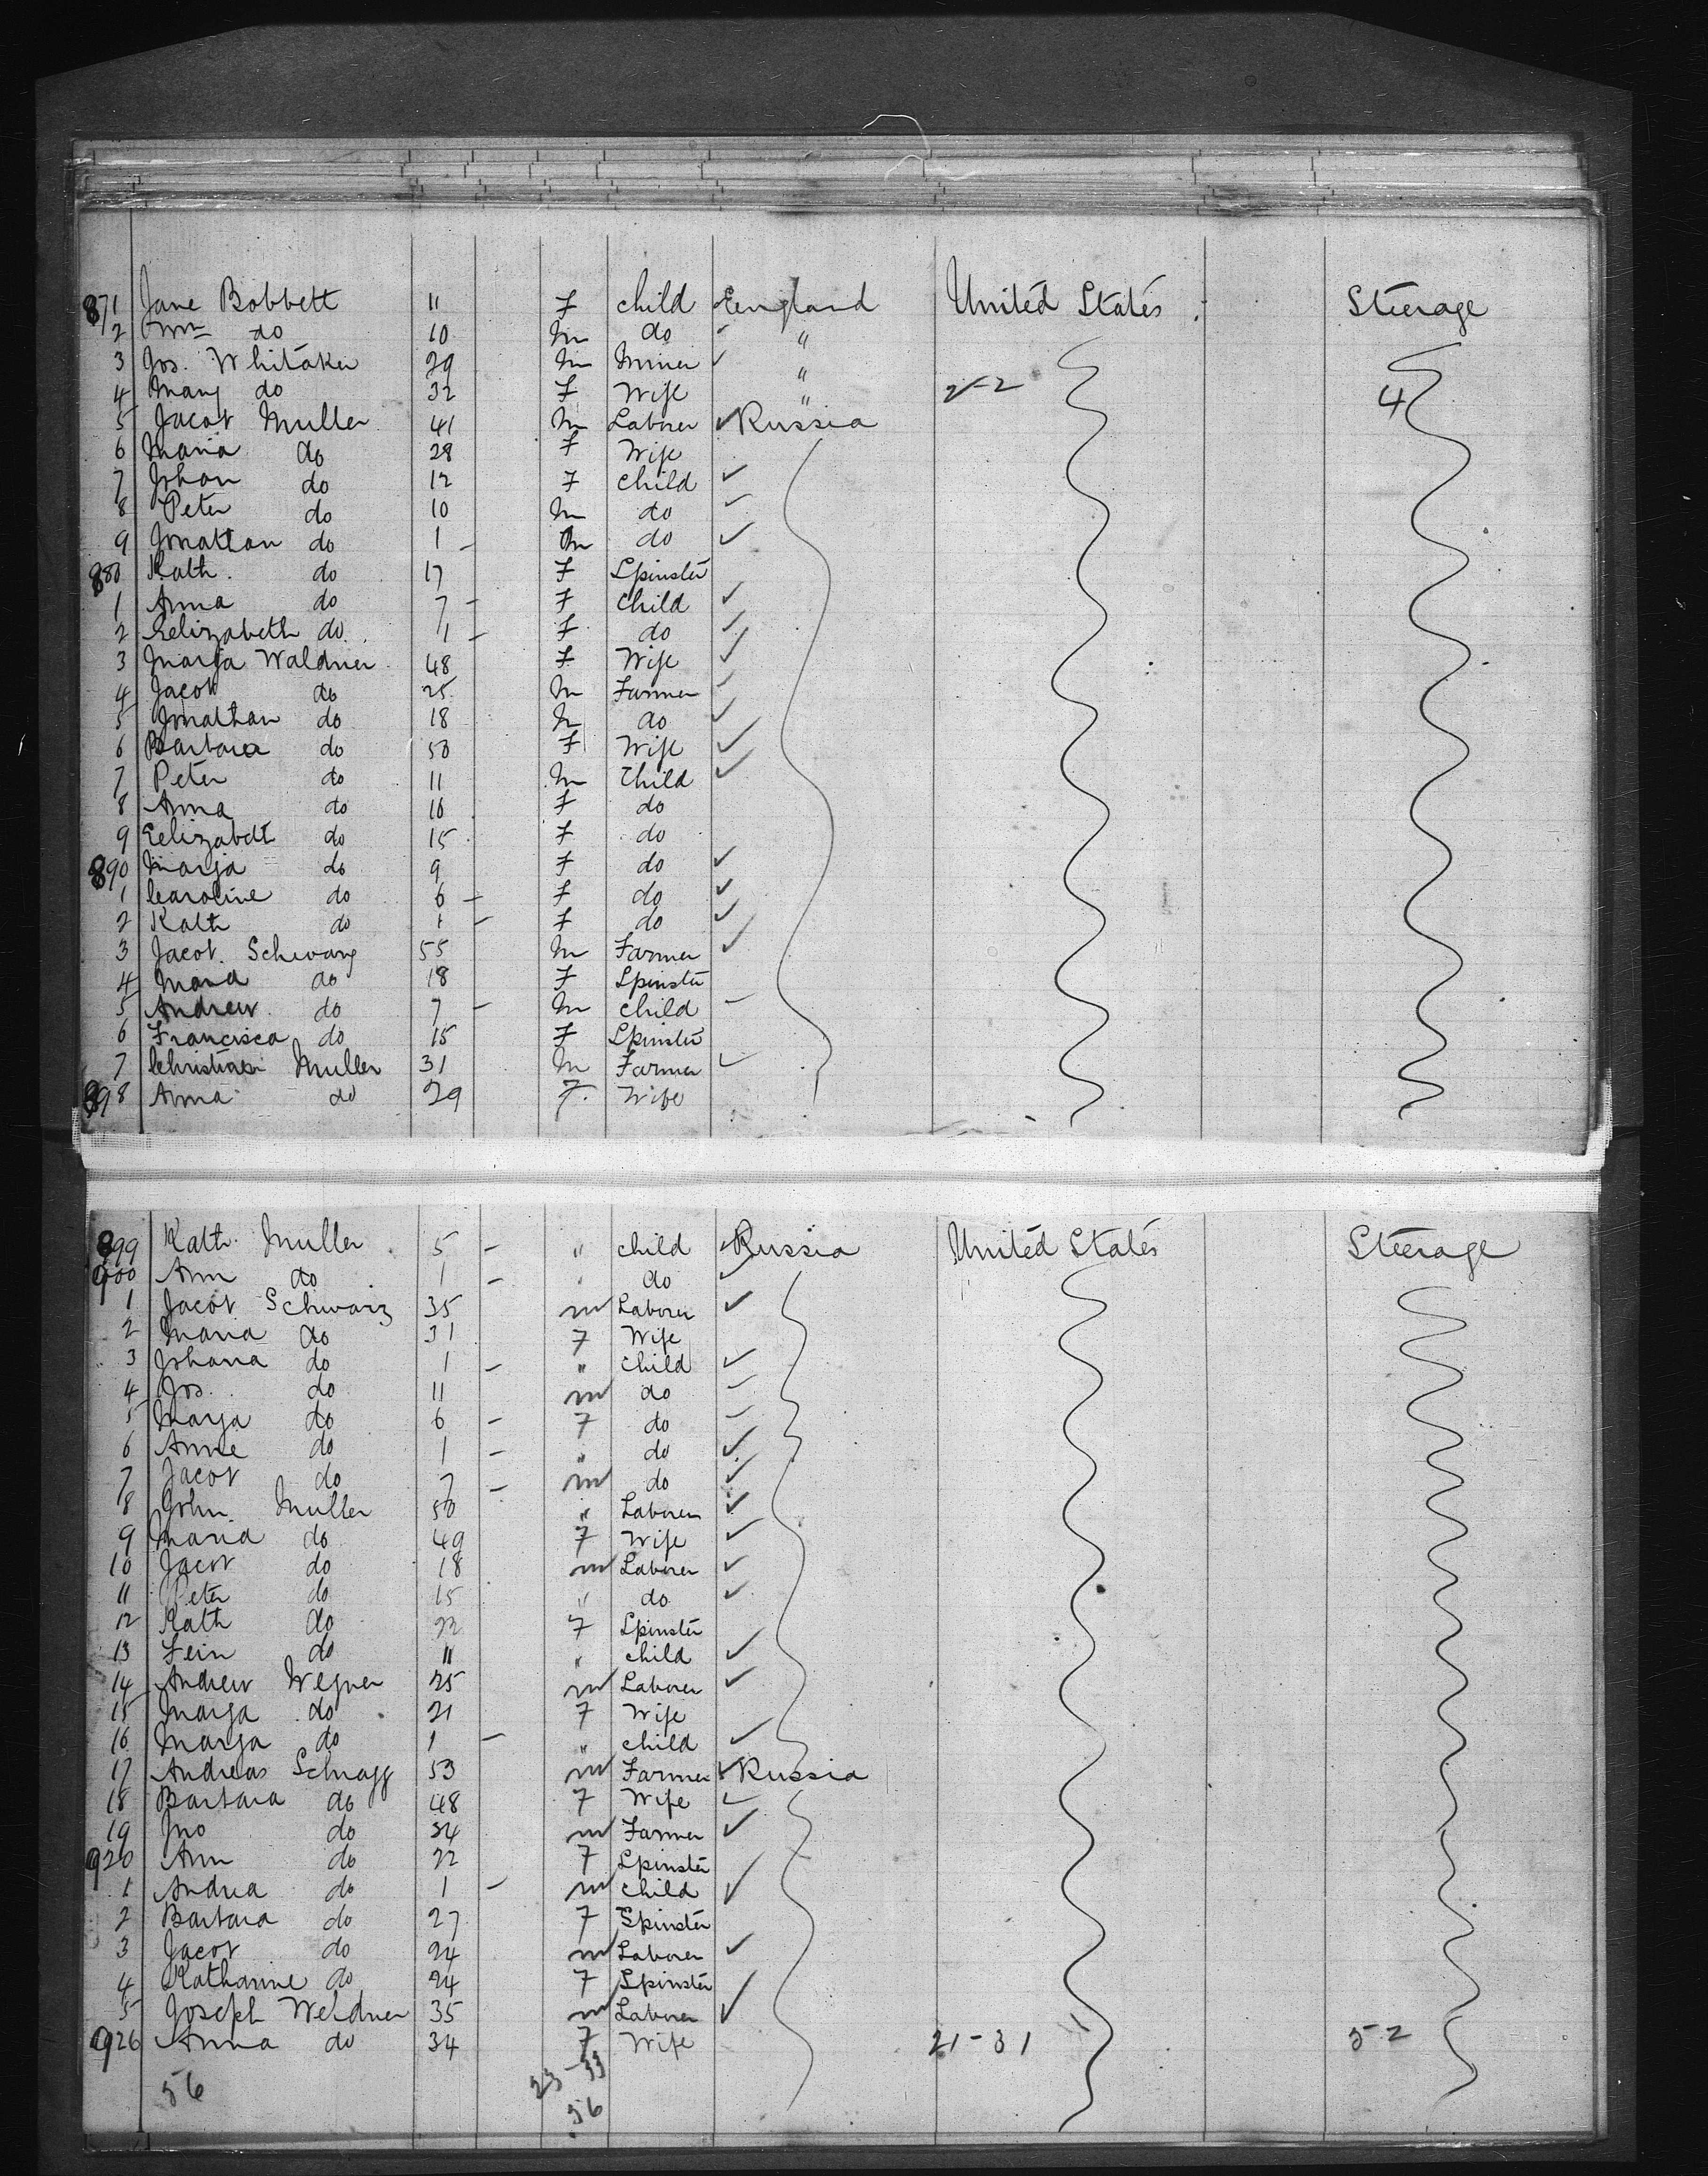 871 Jane Bobbett 11 F child England United States Steerage
2 Wm do 10 m do "
3 Jos. Whitaker 29 m Miner "
4 Mary do 32 F Wife " 2-2 4
5 Jacob Muller 41 m Laborer Russia
6 Maria do 28 F Wife
7 Johan do 12 F child
8 Peter do 10 m do
9 Jonathan do 1 - m do
880 Kath. do 17 F Spinster
1 Anna do 7 - F child
2 Eelizabeth do 1 - F do
3 Marja Waldner 48 F Wife
4 Jacob do 25 m Farmer
5 Jonathan do 18 m do
6 Barbara do 50 F Wife
7 Peter do 11 m Child
8 Anna do 16 F do
9 Eelizabeth do 15 F do
890 Marja do 9 F do
1 Caroline do 6 - F do
2 Kath do 1 - F do
3 Jacob. Schwarz 55 m Farmer
4 Maria do 18 F Spinster
5 Andrew do 7 - m child
6 Francisca do 15 F Spinster
7 Muller 31 m Farmer
898 Anna do 29 F. Wife
899 Kath. Muller 5 - " child Russia United States Steerage
900 Ann do 1 - " do
1 Jacob Schwarz 35 m Laborer
2 Maria do 31 F Wife
3 Johana do 1 - " child
4 Jos. do 11 m do
5 Marja do 6 - F do
6 Anne do 1 - " do
7 Jacob do 7 - m do
8 John. Muller 50 " Laborer
9 Maria do 49 F Wife
10 Jacob do 18 m Laborer
11 Peter do 15 " do
12 Kath do 22 F Spinster
13 do 11 " child
14 Andrew 25 m Laborer
15 Marja do 21 F Wife
16 Marja do 1 - " child
17 Andreas 53 m Farmer Russia
18 Barbara do 48 F Wife
19 Jno do 34 m Farmer
920 Ann do 22 F Spinster
1 Andrea do 1 - m child
2 Barbara do 27 F Spinster
3 Jacob do 24 m Laborer
4 Katharine do 24 F Spinster
5 Joseph Weldner 35 m Laborer
926 Anna do 34 F Wife 21-31 52
23-33
56 56